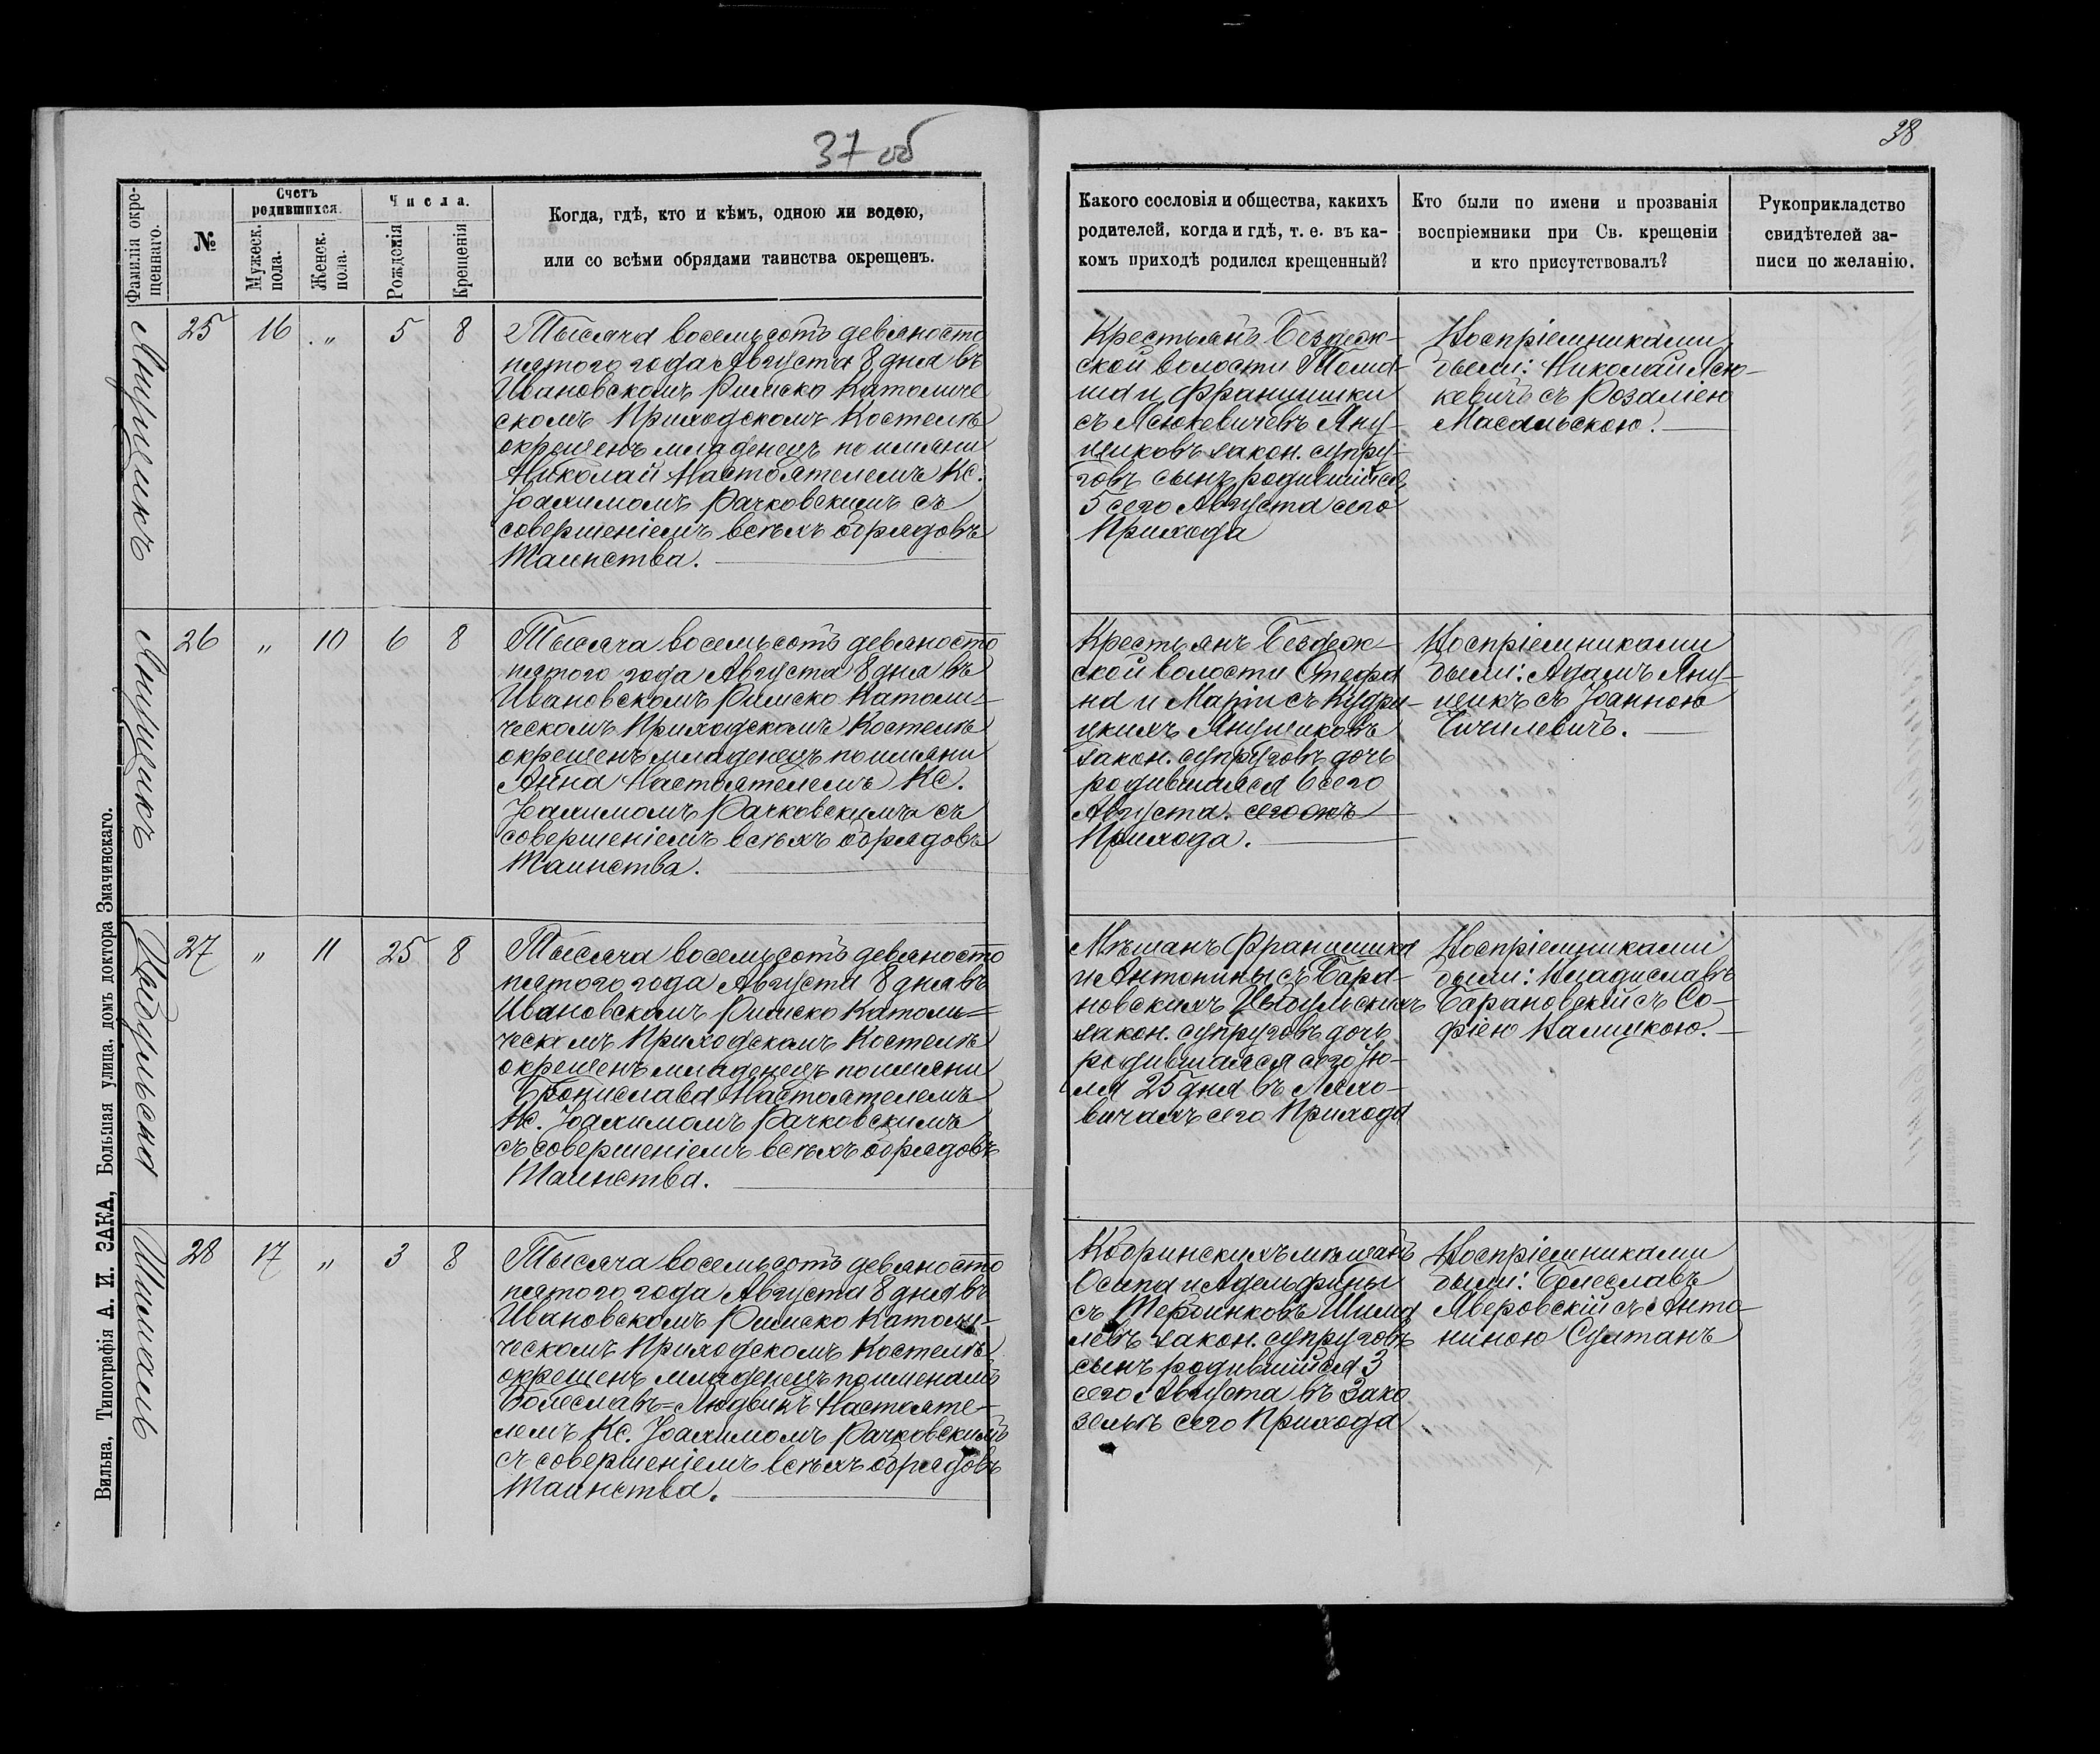 37 об
38
Фамилія окре-
щеннаго.
№
Счетъ
родившихся.
Мужеск.
пола.
Женск.
пола.
Числа.
Рожденія
Крещенія
Когда, гдѣ, кто и кѣмъ, одною ли водою,
или со всѣми обрядами таинства окрещенъ.
Какого сословія и общества, какихъ
родителей, когда и гдѣ, т. е. въ ка-
комъ приходѣ родился крещенный?
Кто были по имени и прозванія
воспріемники при Св. крещеніи
и кто присутствовалъ?
Рукоприкладство
свидѣтелей за-
писи по желанію.
Янущикъ
25 16 „ 5 8
Тысяча восемьсотъ девяносто
пятого года Августа 8 дня въ
Ивановскомъ Римско Католиче
скомъ Приходскомъ Костелѣ
окрещенъ младенецъ по имяни
Николай Настоятелемъ Кс.
Іоахимомъ Рачковскимъ съ
совершеніемъ всѣхъ обрядовъ
Таинства.
Крестьянъ Бездеж-
ской волости Тома-
ша и Францишки
съ Ясюкевичевъ Яну-
щиковъ закон. супру-
говъ сынъ родившійся
5 сего Августа сего
Прихода
Воспріемниками
были: Николай Ясю-
кевичъ съ Розаліею
Масальскою.
Янущикъ
26 „ 10 6 8
Тысяча восемьсотъ девяносто
пятого года Августа 8 дня въ
Ивановскомъ Римско Католи-
ческомъ Приходскомъ Костелѣ
окрещенъ младенецъ по имяни
Анна Настоятелемъ Кс.
Іоахимомъ Рачковскимъ съ
совершеніемъ всѣхъ обрядовъ
Таинства.
Крестьянъ Бездеж-
ской волости Стефа
на и Маріи съ Кудри-
цкихъ Янущиковъ
закон. супруговъ дочь
родившаяся 6 сего
Августа. сегожъ
Прихода.
Воспріемниками
были: Адамъ Яну-
щикъ съ Іоанною
Чичилевичъ.
Цыбульская
27 „ 11 25 8
Тысяча восемьсотъ девяносто
пятого года Августа 8 дня въ
Ивановскомъ Римско Католи=
ческомъ Приходскомъ Костелѣ
окрещенъ младенецъ по имяни
Бронислава Настоятелемъ
Кс. Іоахимомъ Рачковскимъ
съ совершеніемъ всѣхъ обрядовъ
Таинства.
Мѣщанъ Францишка
и Антонины съ Бара-
новскихъ Цыбульскихъ
закон. супруговъ дочь
родившаяся сего Ію-
ля 25 дня въ Ляхо-
вичахъ сего Прихода
Воспріемниками
были: Владиславъ
Барановскій съ Со-
фіею Калицкою.
Шималь
28 17 „ 3 8
Тысяча восемьсотъ девяносто
пятого года Августа 8 дня въ
Ивановскомъ Римско Католи-
ческомъ Приходскомъ Костелѣ
окрещенъ младенецъ по именамъ
Болеславъ=Людвикъ Настояте-
лемъ Кс. Іоахимомъ Рачковскимъ
съ совершеніемъ всѣхъ обрядовъ
Таинства.
Кобринскихъ мѣщанъ
Осипа и Адельфины
съ Шима
левъ закон. супруговъ
сынъ родившійся 3
сего Августа въ Зако
зелѣ сего Прихода
Воспріемниками
были: Болеславъ
Яверовскій съ Анто-
ниною Султанъ
Вильна, Типографія А. И. ЗАКА, Большая улица, домъ доктора Змачинскаго.